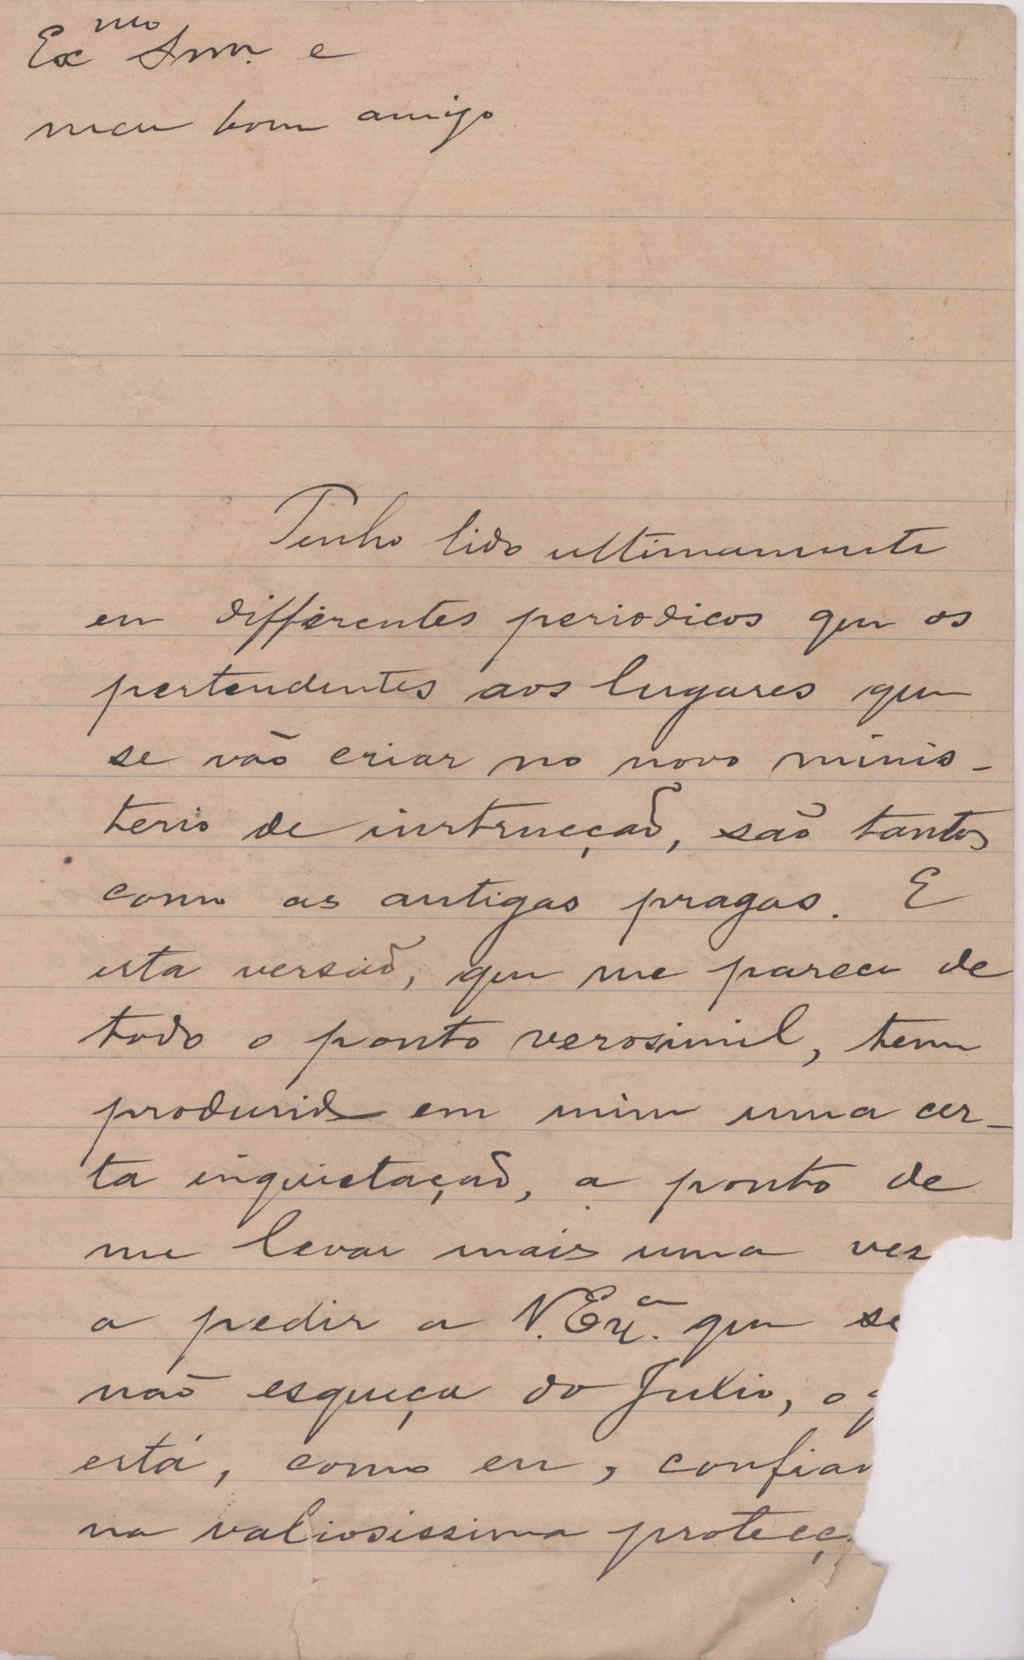 Exmo Snr. e
meu bom amigo
Tenho lido ultimamente
em differentes periodicos que os
pertendentes aos lugares que
se vão criar no novo minis-
terio de instrucção, são tantos
como as antigas pragas. E
esta versão, que me parece de
todo o ponto verosimil, tem
produzido em mim uma cer-
ta inquietação, a ponto de
me levar mais uma vez
a pedir a V. Exa. que se
não esqueça do Julio, o q
está, como eu, confia
na valiosissima protecç